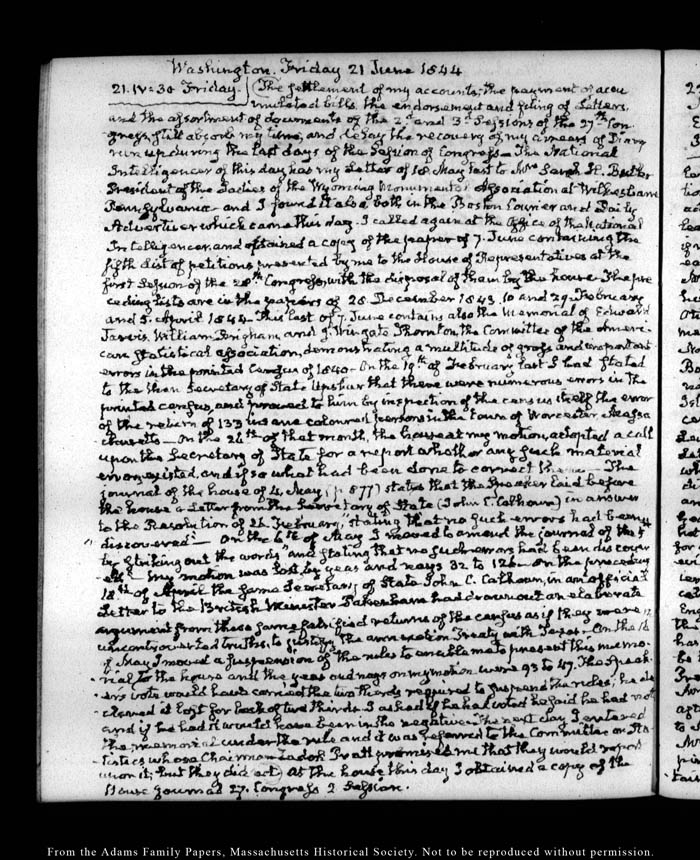 Washington. Friday 21 June 1844
21. IV:30 Friday. The settlement of my accounts, the payment of accu
mulated bills, the endorsement and filing of Letters,
and the assortment of documents of the 2d and 3d Sessions of the 27th Con
gress, still absorb my time, and delay the recovery of my arrears of Diary
run up during the last days of the Session of Congress— The National
Intelligencer of this day has my Letter of 18 May last to Mrs Sarah H. Butler
President of the Ladies of the Wyoming Monumental Association at Wilkesbarre
Pennsylvania— and I found it also both in the Boston Courier and Daily
Advertiser which came this day. I called again at the Office of the National
Intelligencer, and obtained a copy of the paper of 7. June containing the
fifth list of petitions presented by me to the House of Representatives at the
first Session of the 28th Congress, with the disposal of them by the house. The pre
ceding lists are in the papers of 28. December 1843. 10 and 29. February
and 5. April 1844. This last of 7. June contains also the Memorial of Edward
Jarvis, William Brigham and J. Wingate Thornton, the Committee of the Ameri-
can Statistical association, demonstrating a multitude of gross and important
errors in the printed Census of 1840— On the 19th of February last I had stated
to the then Secretary of State Upshur that there were numerous errors in the
printed census, and proved to him by inspection of the census itself the error
of the return of 133 insane coloured persons in the town of Worcester Massa
chusetts— On the 26th of that month, the house at my motion, adopted a call
upon the Secretary of State for a report whether any such material
errors existed, and if so what had been done to correct them— The
journal of the house of 4. May (p. 877) states that the Speaker laid before
the house a Letter from the Secretary of State (John C. Calhoun) in answer
to the Resolution of 26. February, "stating that no such errors had been
discovered"— On the 6th of May I moved to amend the journal of the
by striking out the words "and stating that no such errors had been discover
ed". My motion was lost by yeas and nays 32 to 126— On the preceding
18th of April the same Secretary of State John C. Calhoun, in an official
Letter to the British Minister Pakenham had drawn out an elaborate
argument from these same falsified returns of the census as if they were
uncontroverted truths, to justify the annexation Treaty with Texas— On the
of May I moved a suspension of the rules to enable me to present this memo-
rial to the house and the yeas and nays on my motion were 93 to 47. The Speak-
er's vote would have carried the two thirds required to suspend the rules; he de
clared it lost for lack of two thirds. I asked if he had voted he said he had not
and if he had it would have been in the negative. The next day I entered
the memorial under the rule and it was referred to the Committee on Sta
tistics whose Chairman Zadok Pratt promised me that they would report
upon it; but they did not) At the house this day I obtained a copy of the
House journal 27. Congress 2 Session.
From the Adams Family Papers, Massachusetts Historical Society. Not to be reproduced without permission.